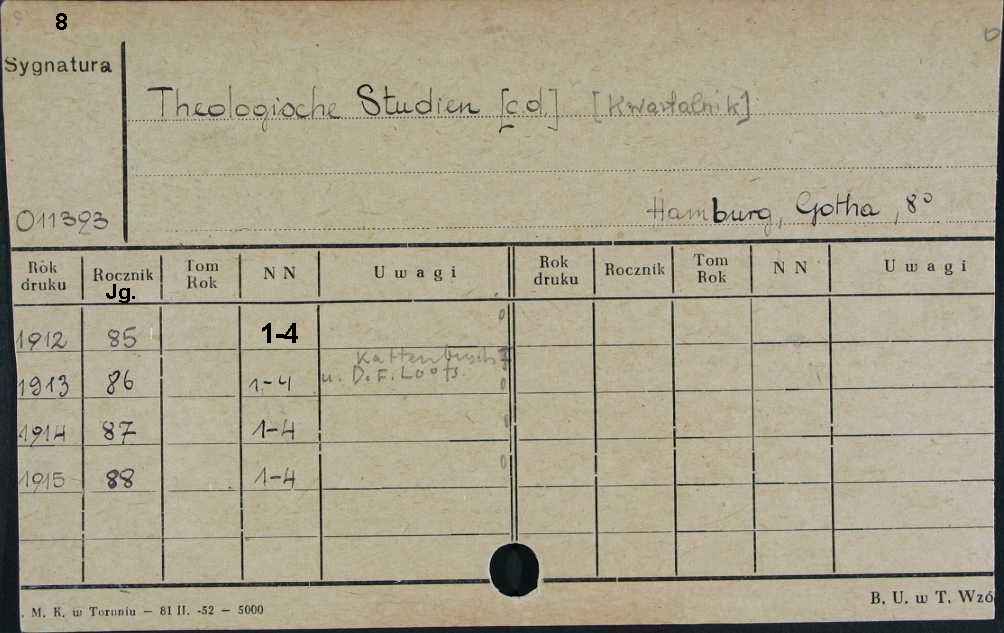 8
Sygnatura
Theologische Studien [c.d.] [Kwartalnik]
011393
Hamburg, Gotha, 8°
Rok druku Rocznik Jg. Tom Rok N N Uwagi Rok druku Rocznik Tom Rok N N Uwagi
1912 85 1-4
Kattenbusch
1913 86 1-4 u. D. F. Loofs.
1914 87 1-4
1915 88 1-4
. M. K. w Toruniu — 81 II. -52 — 5000
B. U. w T. Wzó